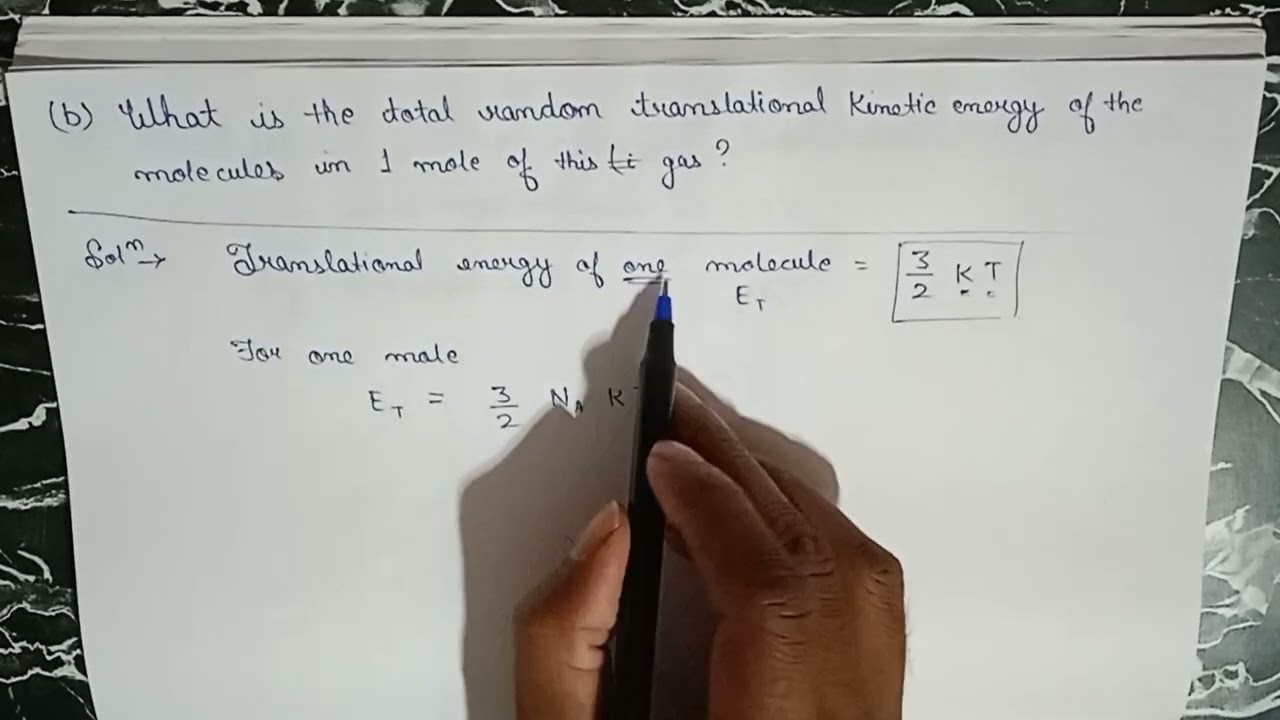 (b) What is the total random translational Kinetic energy of the
molecules in 1 mole of this gas?
Solⁿ→ Translational energy of one molecule = 3/2 K T
E_T
For one mole
E_T = 3/2 N_A K